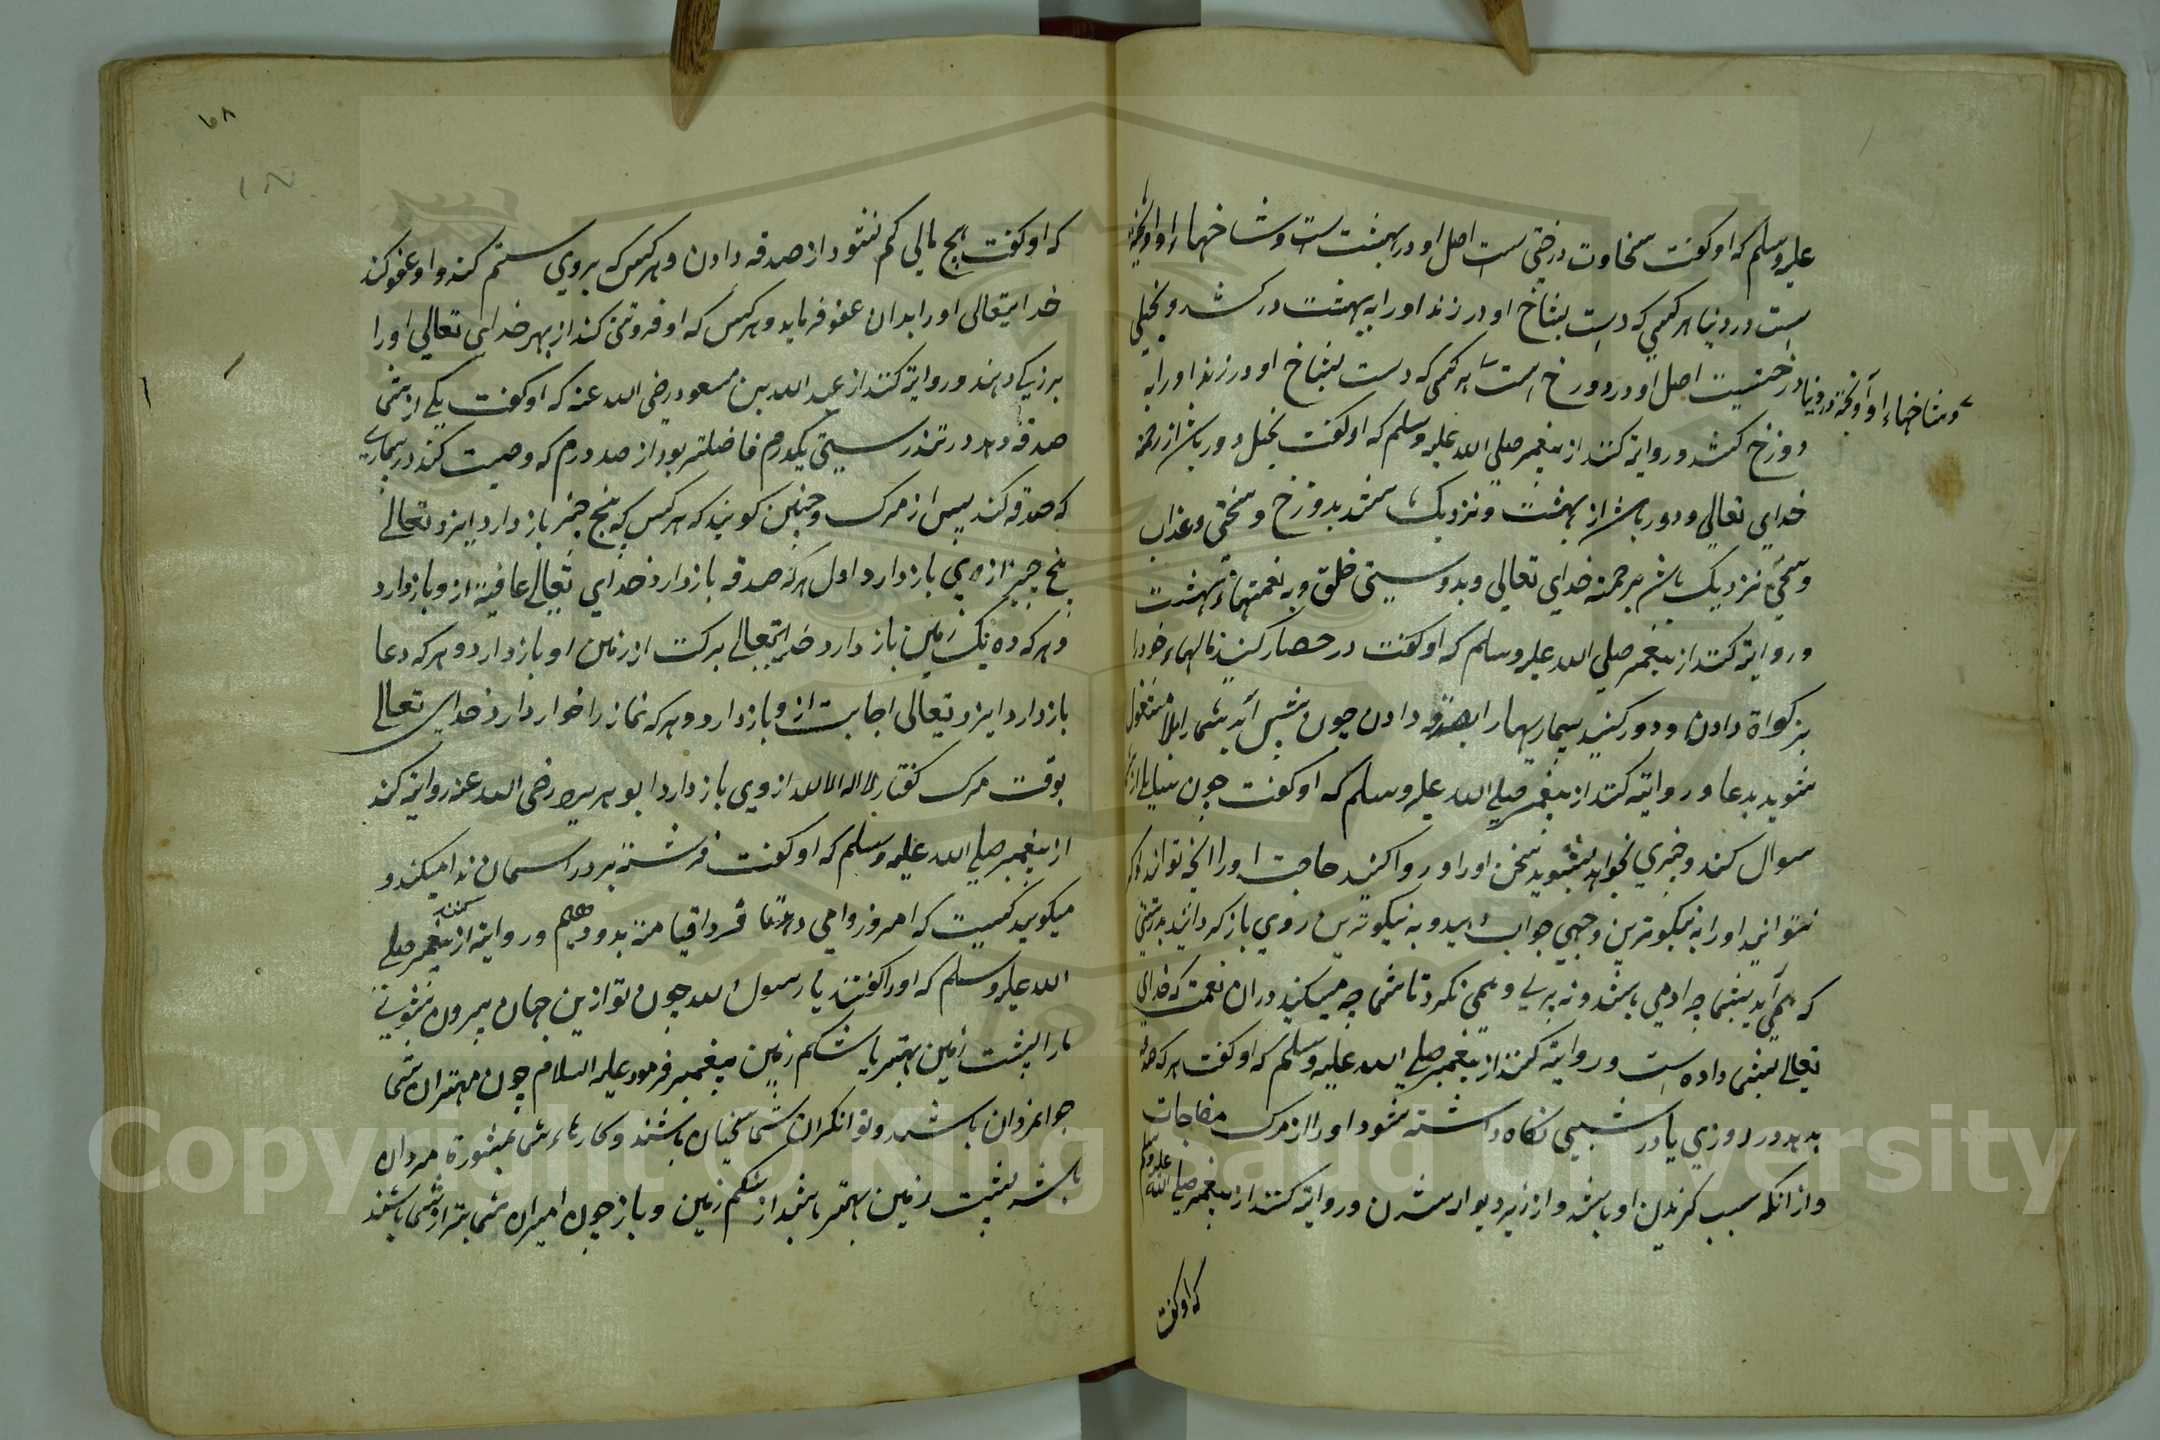 علیه وسلم که او کفت سخاوت درختی است اصل او در بهشت است و شاخهاء او آویخته
است در دنیا هر کسی که دست بشاخ او در زند او را به بهشت در کشد و بخیلی
درختیست اصل او در دوزخ است هر کسی که دست بشاخ او در زند او را به
و شاخهاء او آویخته در دنیا
دوزخ کشد و روایة کنند از پیغمبر صلی الله علیه وسلم که او کفت بخیل دور باشد از رحمة
خدای تعالی و دور باشد از بهشت و نزدیک باشد بدوزخ و سختی و عذاب
و سخی نزدیک باشد برحمة خدای تعالی و بدوستی خلق و به نعمتهاء بهشت
و روایة کنند از پیغمبر صلی الله علیه وسلم که او کفت در حصار کنید مالهاء خود را
بزکواة دادن و دور کنید بیماریها را بصدقه دادن چون پیش آید شما را بلا مشغول
شوید بدعا و روایة کنند از پیغمبر صلی الله علیه وسلم که او کفت چون سایلی از
سوال کند و چیزی بخواهد بشنوید سخن او را و روا کنید حاجت او را اکر توانید و اکر
نتوانید او را به نیکوترین وجهی جواب دهید و به نیکوترین روی باز کردانید بدرستی
که همی آید بشما چه ادمی باشد و نه پری و همی نکرد تا شما چه میکنید در ان نعمت که خدای
تعالی بشما داده است و روایة کنند از پیغمبر صلی الله علیه وسلم که او کفت هر که صدقه
بدهد در روزی یا در شبی نکاه داشته شود او را از مرک مفاجات
و از انکه سبب کزیدن او باشد و از زیر دیوار شدن و روایة کنند از پیغمبر صلی الله علیه وسلم
که او کفت
۶۸
که او کفت هیچ مالی کم نشود از صدقه دادن و هر کس که بروی ستم کنند و او عفو کند
خدایتعالی او را بدان عفو فرماید و هر کس که او فروتنی کند از بهر خدای تعالی او را
بزرکی دهند و روایة کنند از عبد الله بن مسعود رضی الله عنه که او کفت یکی از شما
صدقه دهد در تندرستی یکدرم فاضلتر بود از صد درم که وصیت کند در بیماری
که صدقه کند پس از مرک و چنین کویند که هر کس که پنج چیز باز دارد ایزد تعالی
پنج چیز از وی باز دارد اول هر که صدقه باز دارد خدای تعالی عافیة از و باز دارد
و هر که ده یک زمین باز دارد خدایتعالی برکت از زمین او باز دارد و هر که دعا
باز دارد ایزد تعالی اجابت از و باز دارد و هر که نماز را خوار دارد خدای تعالی
بوقت مرک کفتار لا اله الا الله از وی باز دارد ابو هریره رضی الله عنه روایة کند
از پیغمبر صلی الله علیه وسلم که او کفت فرشتة بر در اسمان ندا میکند و
میکوید کیست که امروز وامی دهد تا فردا قیامة بدو دهیم و روایة کنند از پیغمبر صلی
الله علیه وسلم که او را کفتند یا رسول الله چون تو ازین جهان بیرون شوی
ما را پشت زمین بهتر یا شکم زمین پیغمبر فرمود علیه السلام چون مهتران شما
جوانمردان باشند و توانکران شما سخیان باشند و کارهاء شما بمشورة مردان
باشد پشت زمین بهتر باشد از شکم زمین و باز چون امیران شما بتر از شما باشند
Copyright © King Saud University